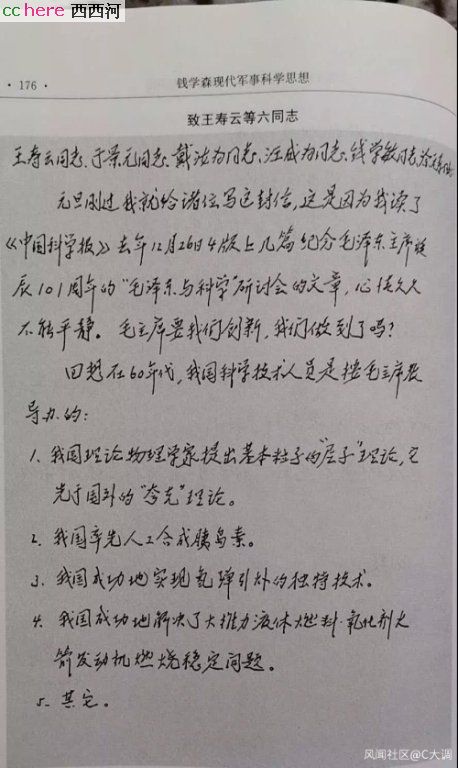 cchere 西西河
·176· 钱学森现代军事科学思想
致王寿云等六同志
王寿云同志、于景元同志、戴汝为同志、汪成为同志、钱学敏同志、涂元季同志:
元旦刚过我就给诸位写这封信,这是因为我读了
《中国科学报》去年12月26日4版上几篇纪念毛泽东主席诞
辰101周年的“毛泽东与科学”研讨会的文章,心情久久
不能平静。毛主席要我们创新,我们做到了吗?
回想在60年代,我国科学技术人员是按毛主席教
导办的:
1. 我国理论物理学家提出基本粒子的“层子”理论,它
先于国外的“夸克”理论。
2. 我国率先人工合成胰岛素。
3. 我国成功地实现氢弹引爆的独特技术。
4. 我国成功地解决了大推力液体燃料氧化剂火
箭发动机燃烧稳定问题。
5. 其它。
风闻社区@C大调